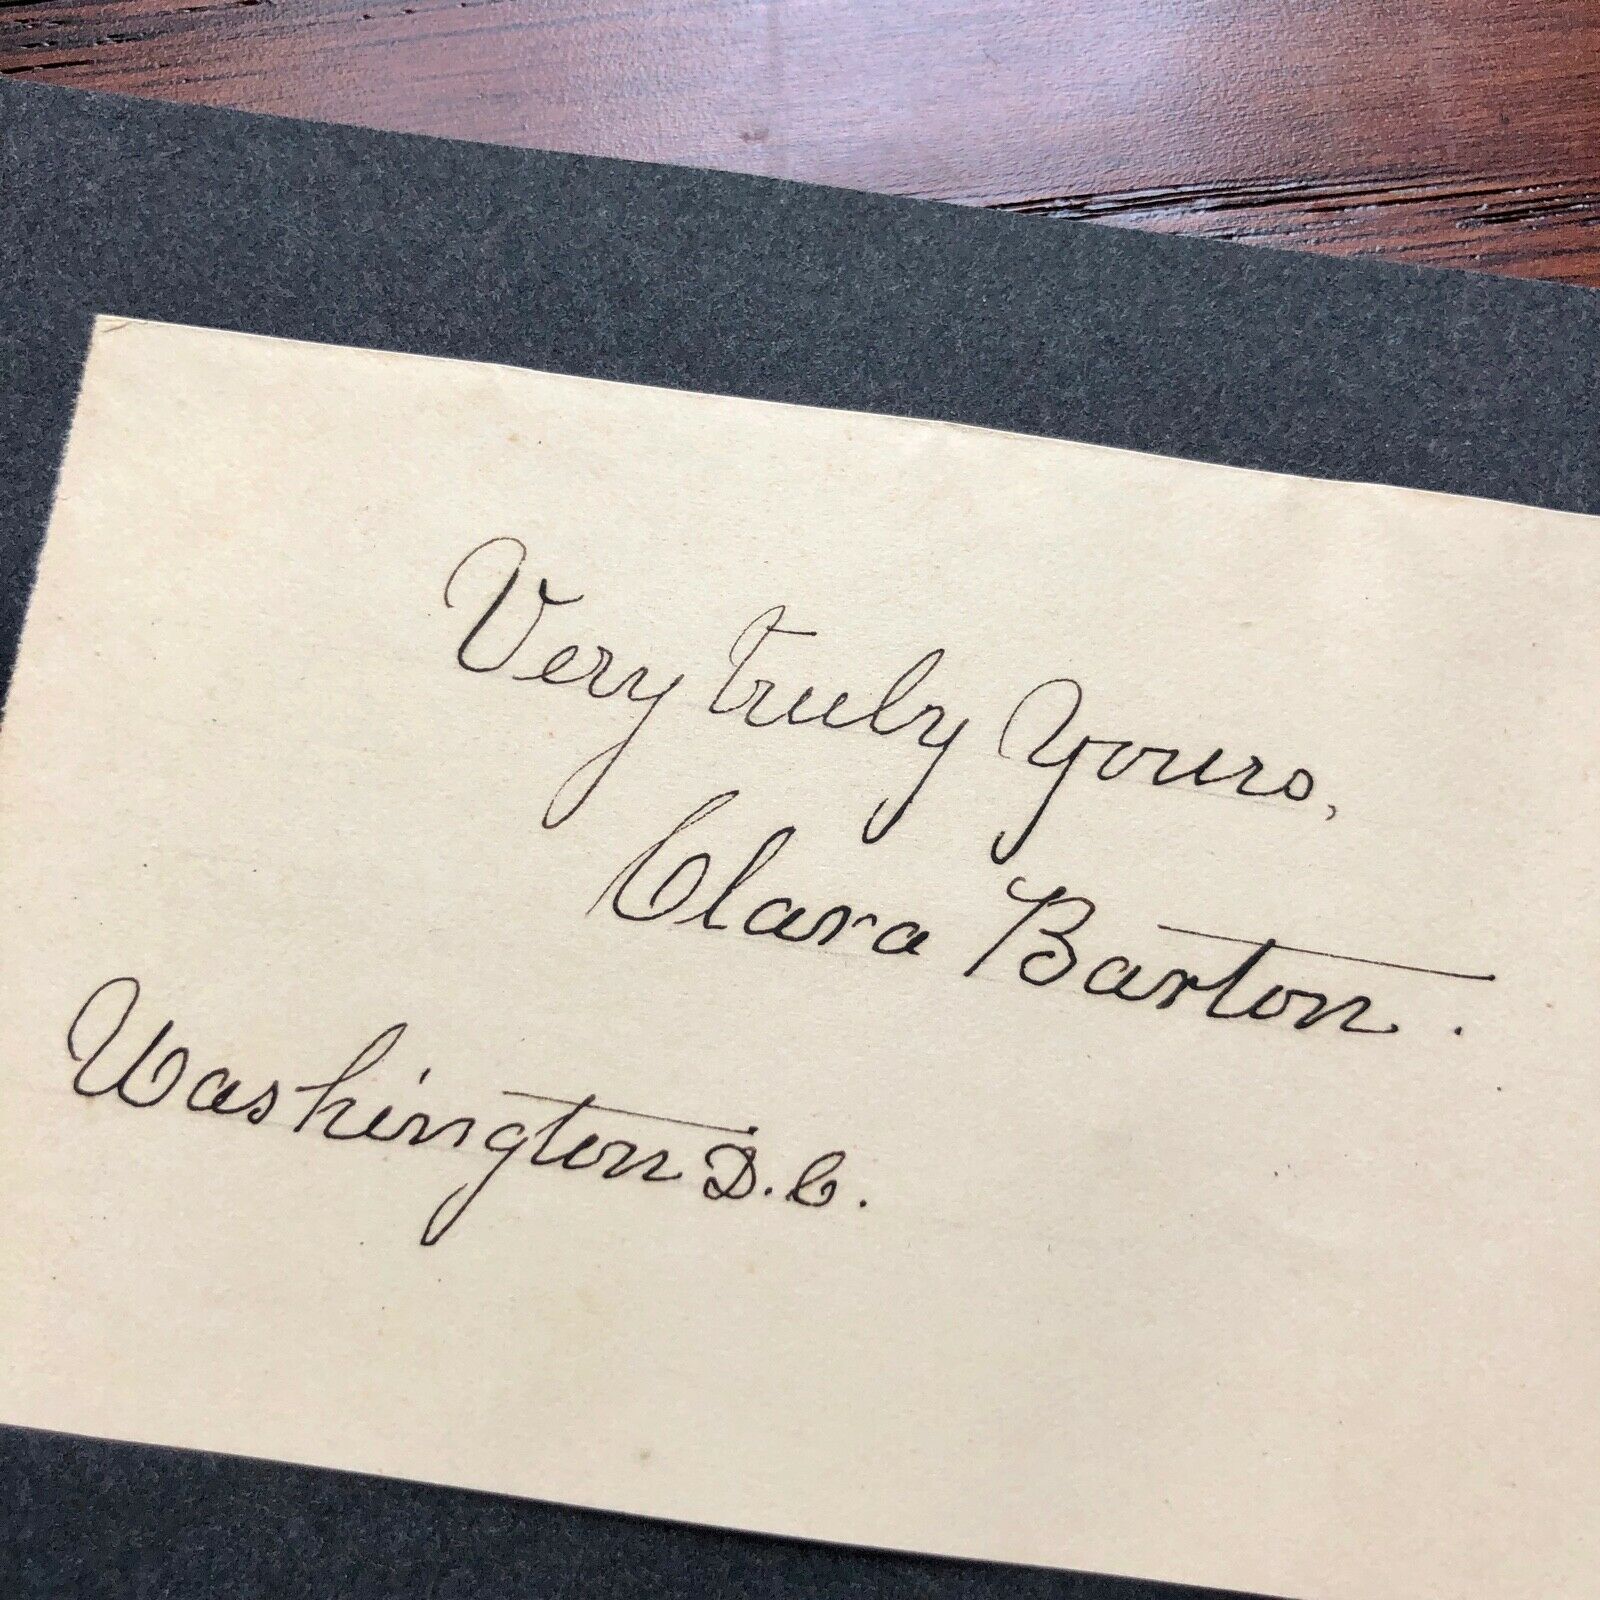 Very truly Yours,
Clara Barton.
Washington D.C.